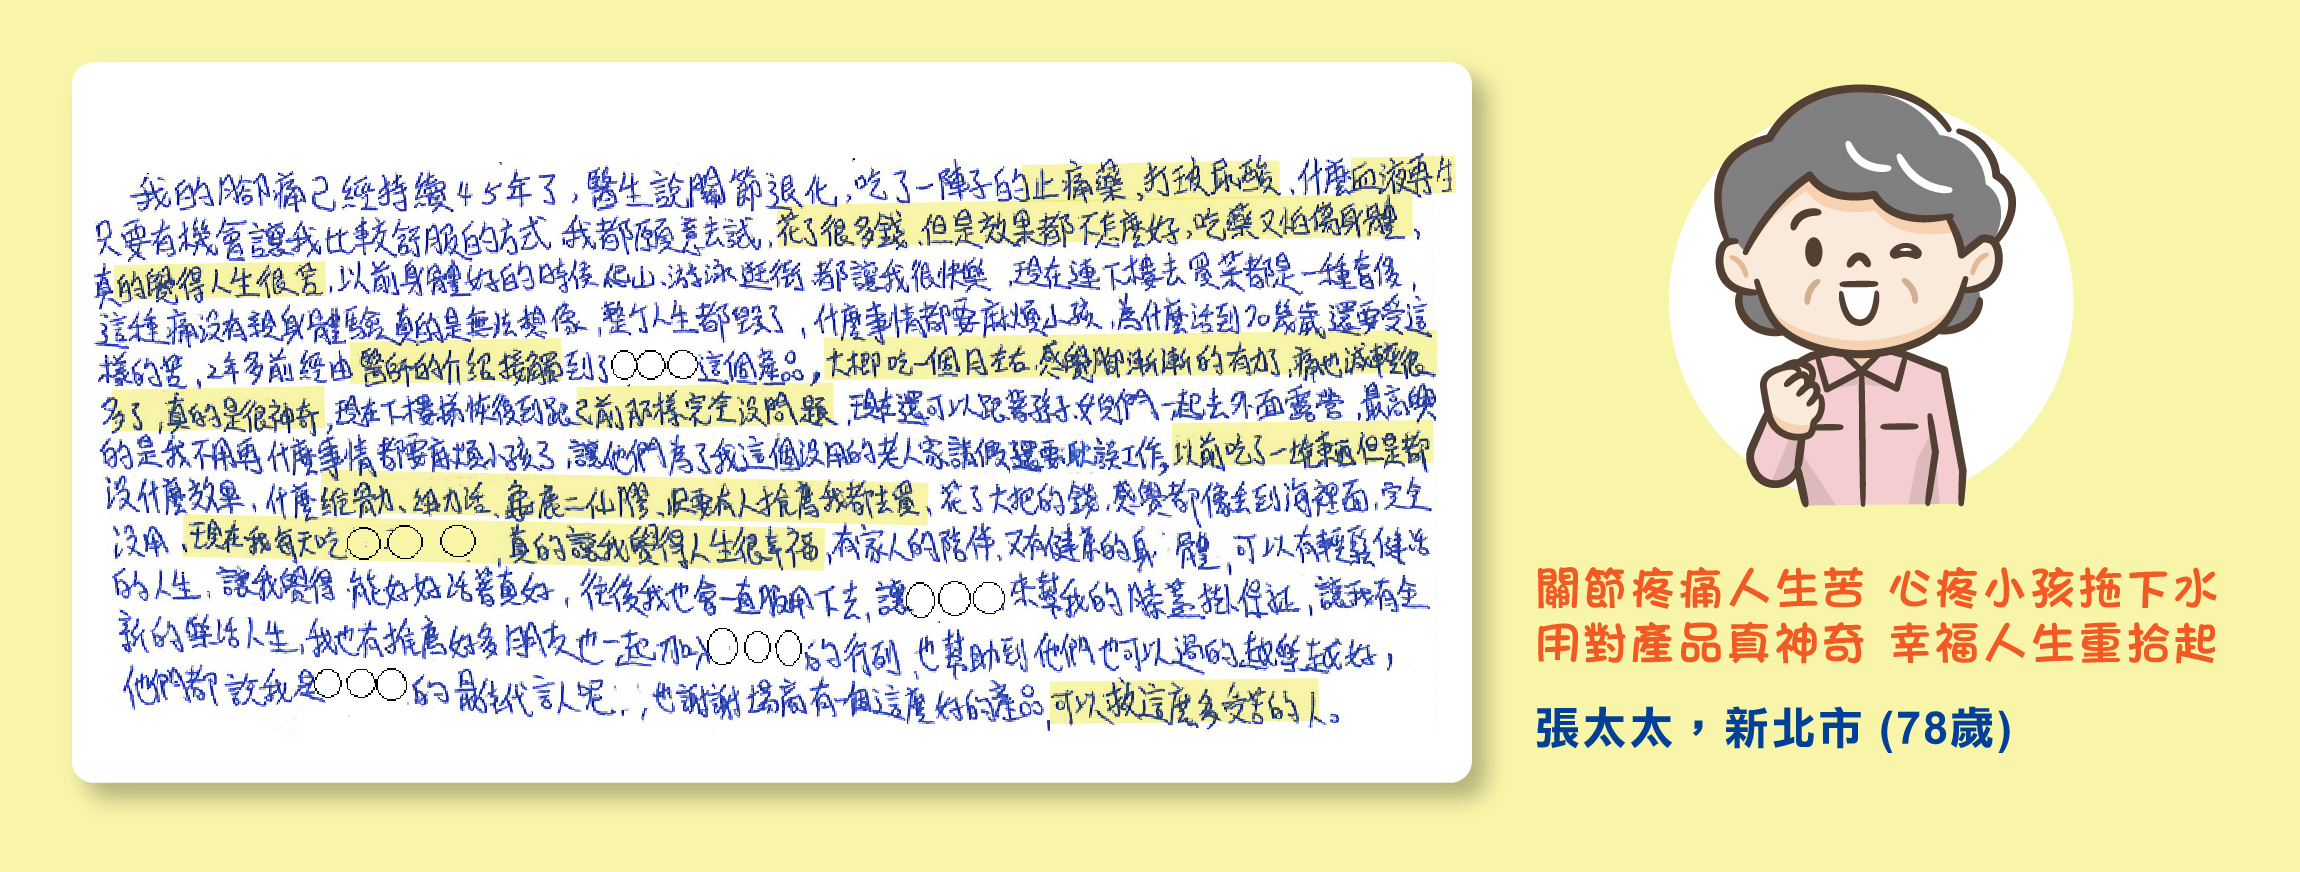 我的腳痛已經持續45年了，醫生說關節退化，吃了一陣子的止痛藥、打玻尿酸、什麼血液再生
只要有機會讓我比較舒服的方式，我都願意去試，花了很多錢、但是效果都不怎麼好，吃藥又怕傷身體，
真的覺得人生很苦，以前身體好的時候爬山、游泳、逛街都讓我很快樂，現在連下樓去買菜都是一種奢侈，
這種痛沒有親身體驗真的是無法想像，整个人生都毀了，什麼事情都要麻煩小孩，為什麼活到70幾歲還要受這
樣的苦，2年多前經由醫師的介紹接觸到了○○○這個產品，大概吃一個月左右，感覺腳漸漸的有力了，痛也減輕很
多了，真的是很神奇，現在下樓梯恢復到跟之前那樣完全沒問題，現在還可以跟著孫子女兒們一起去外面露營，最高興
的是我不用再什麼事情都要麻煩小孩了，讓他們為了我這個沒用的老人家請假還要耽誤工作，以前吃了一堆東西但是都
沒什麼效果，什麼維骨力、維力活、龜鹿二仙膠、只要有人推薦我都去買、花了大把的錢，感覺都像丟到海裡面，完全
沒用，現在我每天吃○○○，真的讓我覺得人生很幸福，有家人的陪伴、又有健康的身體，可以有輕鬆健活
的人生，讓我覺得能好好活著真好，往後我也會一直服用下去，讓○○○來幫我的膝蓋掛保証，讓我有全
新的樂活人生，我也有推薦好多朋友也一起加入○○○的行列，也幫助到他們也可以過的越樂越好，
他們都說我是○○○的最佳代言人呢，也謝謝場商有一個這麼好的產品，可以救這麼多受苦的人。
關節疼痛人生苦 心疼小孩拖下水
用對產品真神奇 幸福人生重拾起
張太太，新北市 (78歲)